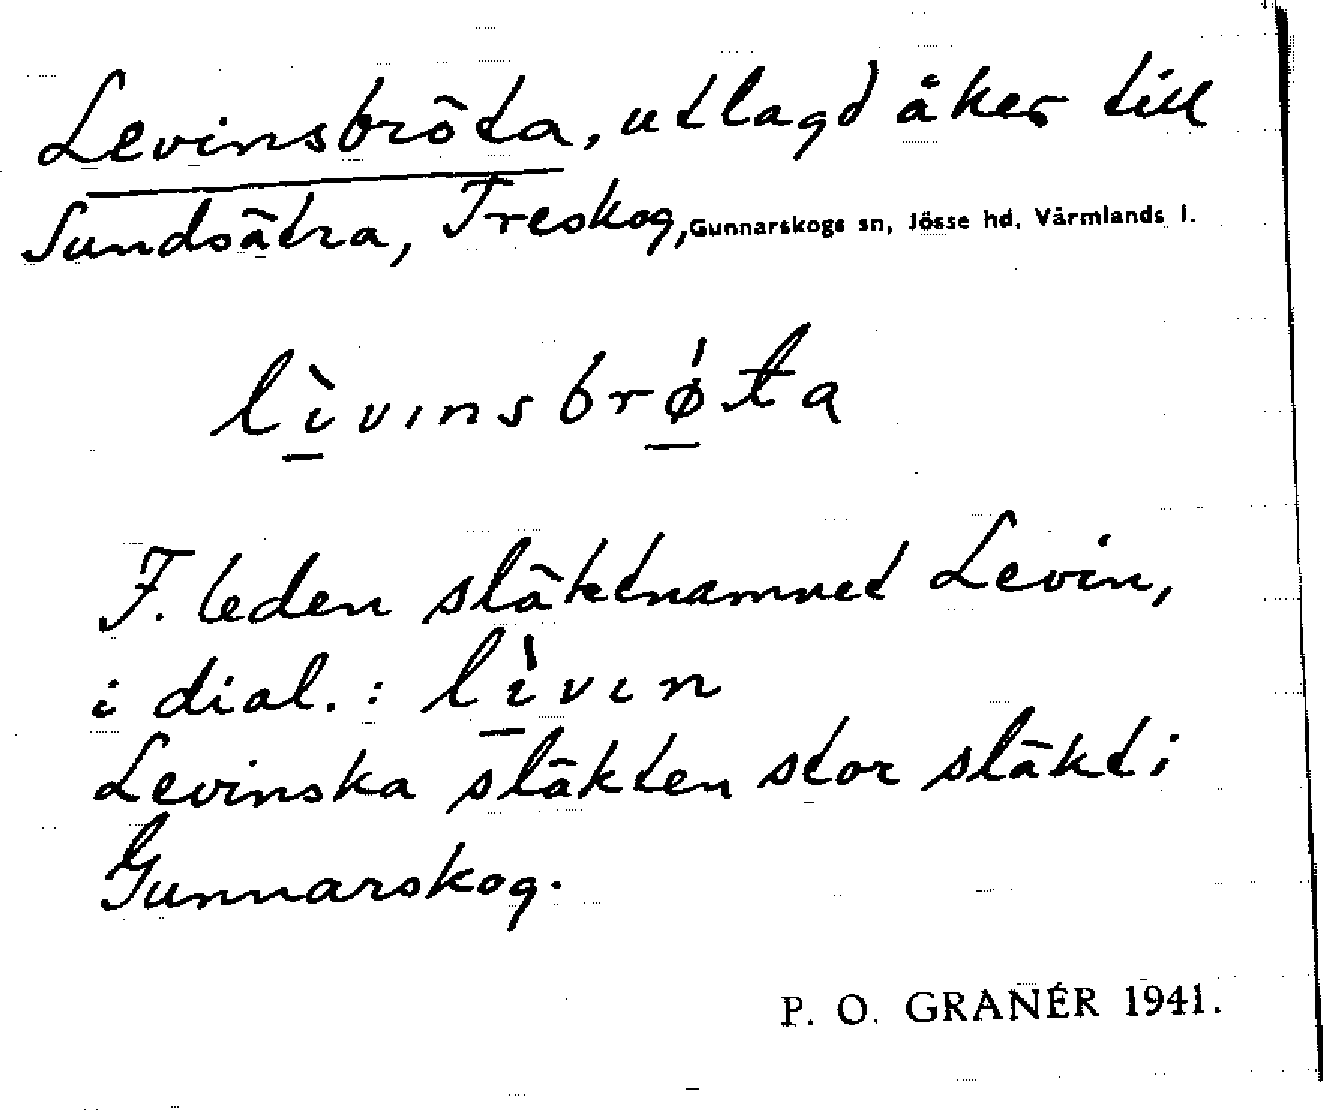 Levinsbröta, utlagd åker till
Sundsätra, Treskog, Gunnarskogs sn, Jösse hd, Värmlands l.
lı̀vınsbrǿta
F. leden släktnamnet Levin,
i dial. : lı̀vın
Levinska släkten stor släkt i
Gunnarskog.
P. O. GRANÉR 1941.